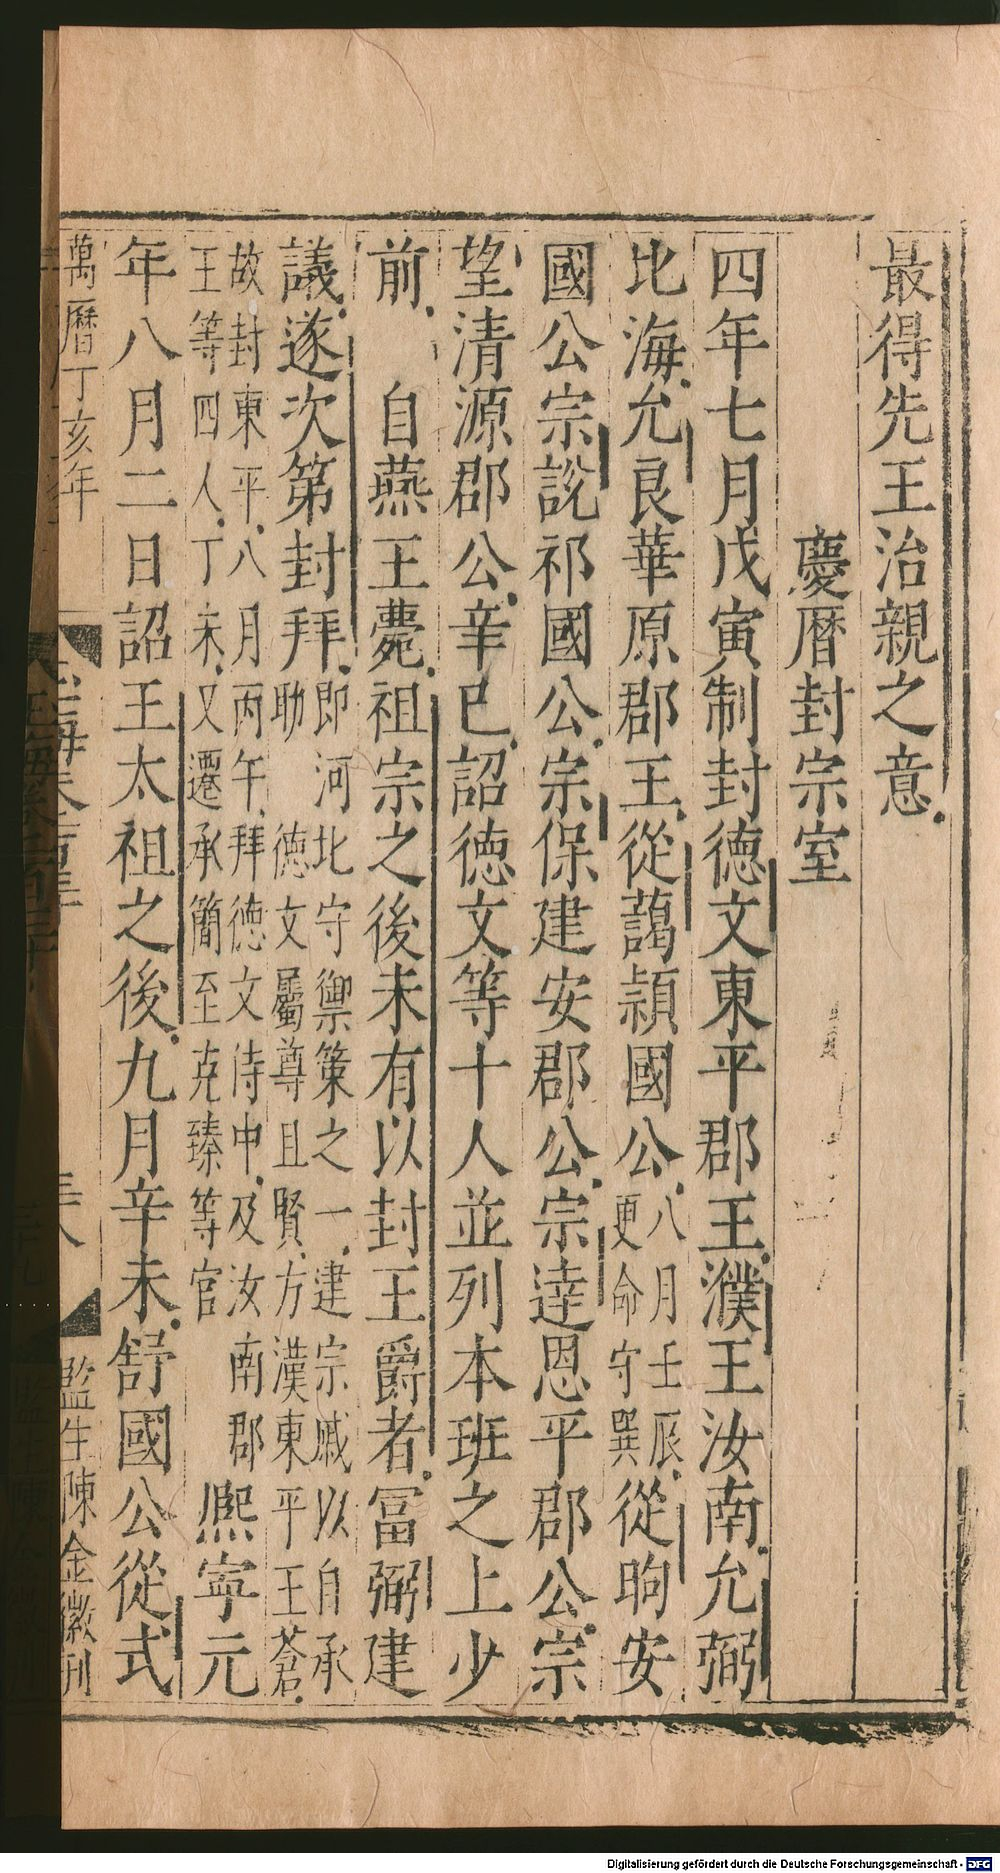 最得先王治親之意
慶曆封宗室
四年七月戊寅制封德文東平郡王濮王汝南允弼
比海允良華原郡王從藹頴國公八月壬辰更命守巽從昫安
國公宗說祁國公宗保建安郡公宗達恩平郡公宗
望清源郡公辛巳詔德文等十人並列本班之上少
前　自燕王薨祖宗之後未有以封王爵者冨弼建
議遂次第封拜即河北守禦策之一建宗戚以自承助　德文屬尊且賢方漢東平王蒼
故封東平八月丙午拜德文侍中及汝南郡王等四人丁未又遷承簡至克臻等官熈寜元
年八月二日詔王太祖之後九月辛未舒國公從式
萬曆丁亥年
監生陳金徽刊
Digitalisierung gefördert durch die Deutsche Forschungsgemeinschaft - DFG